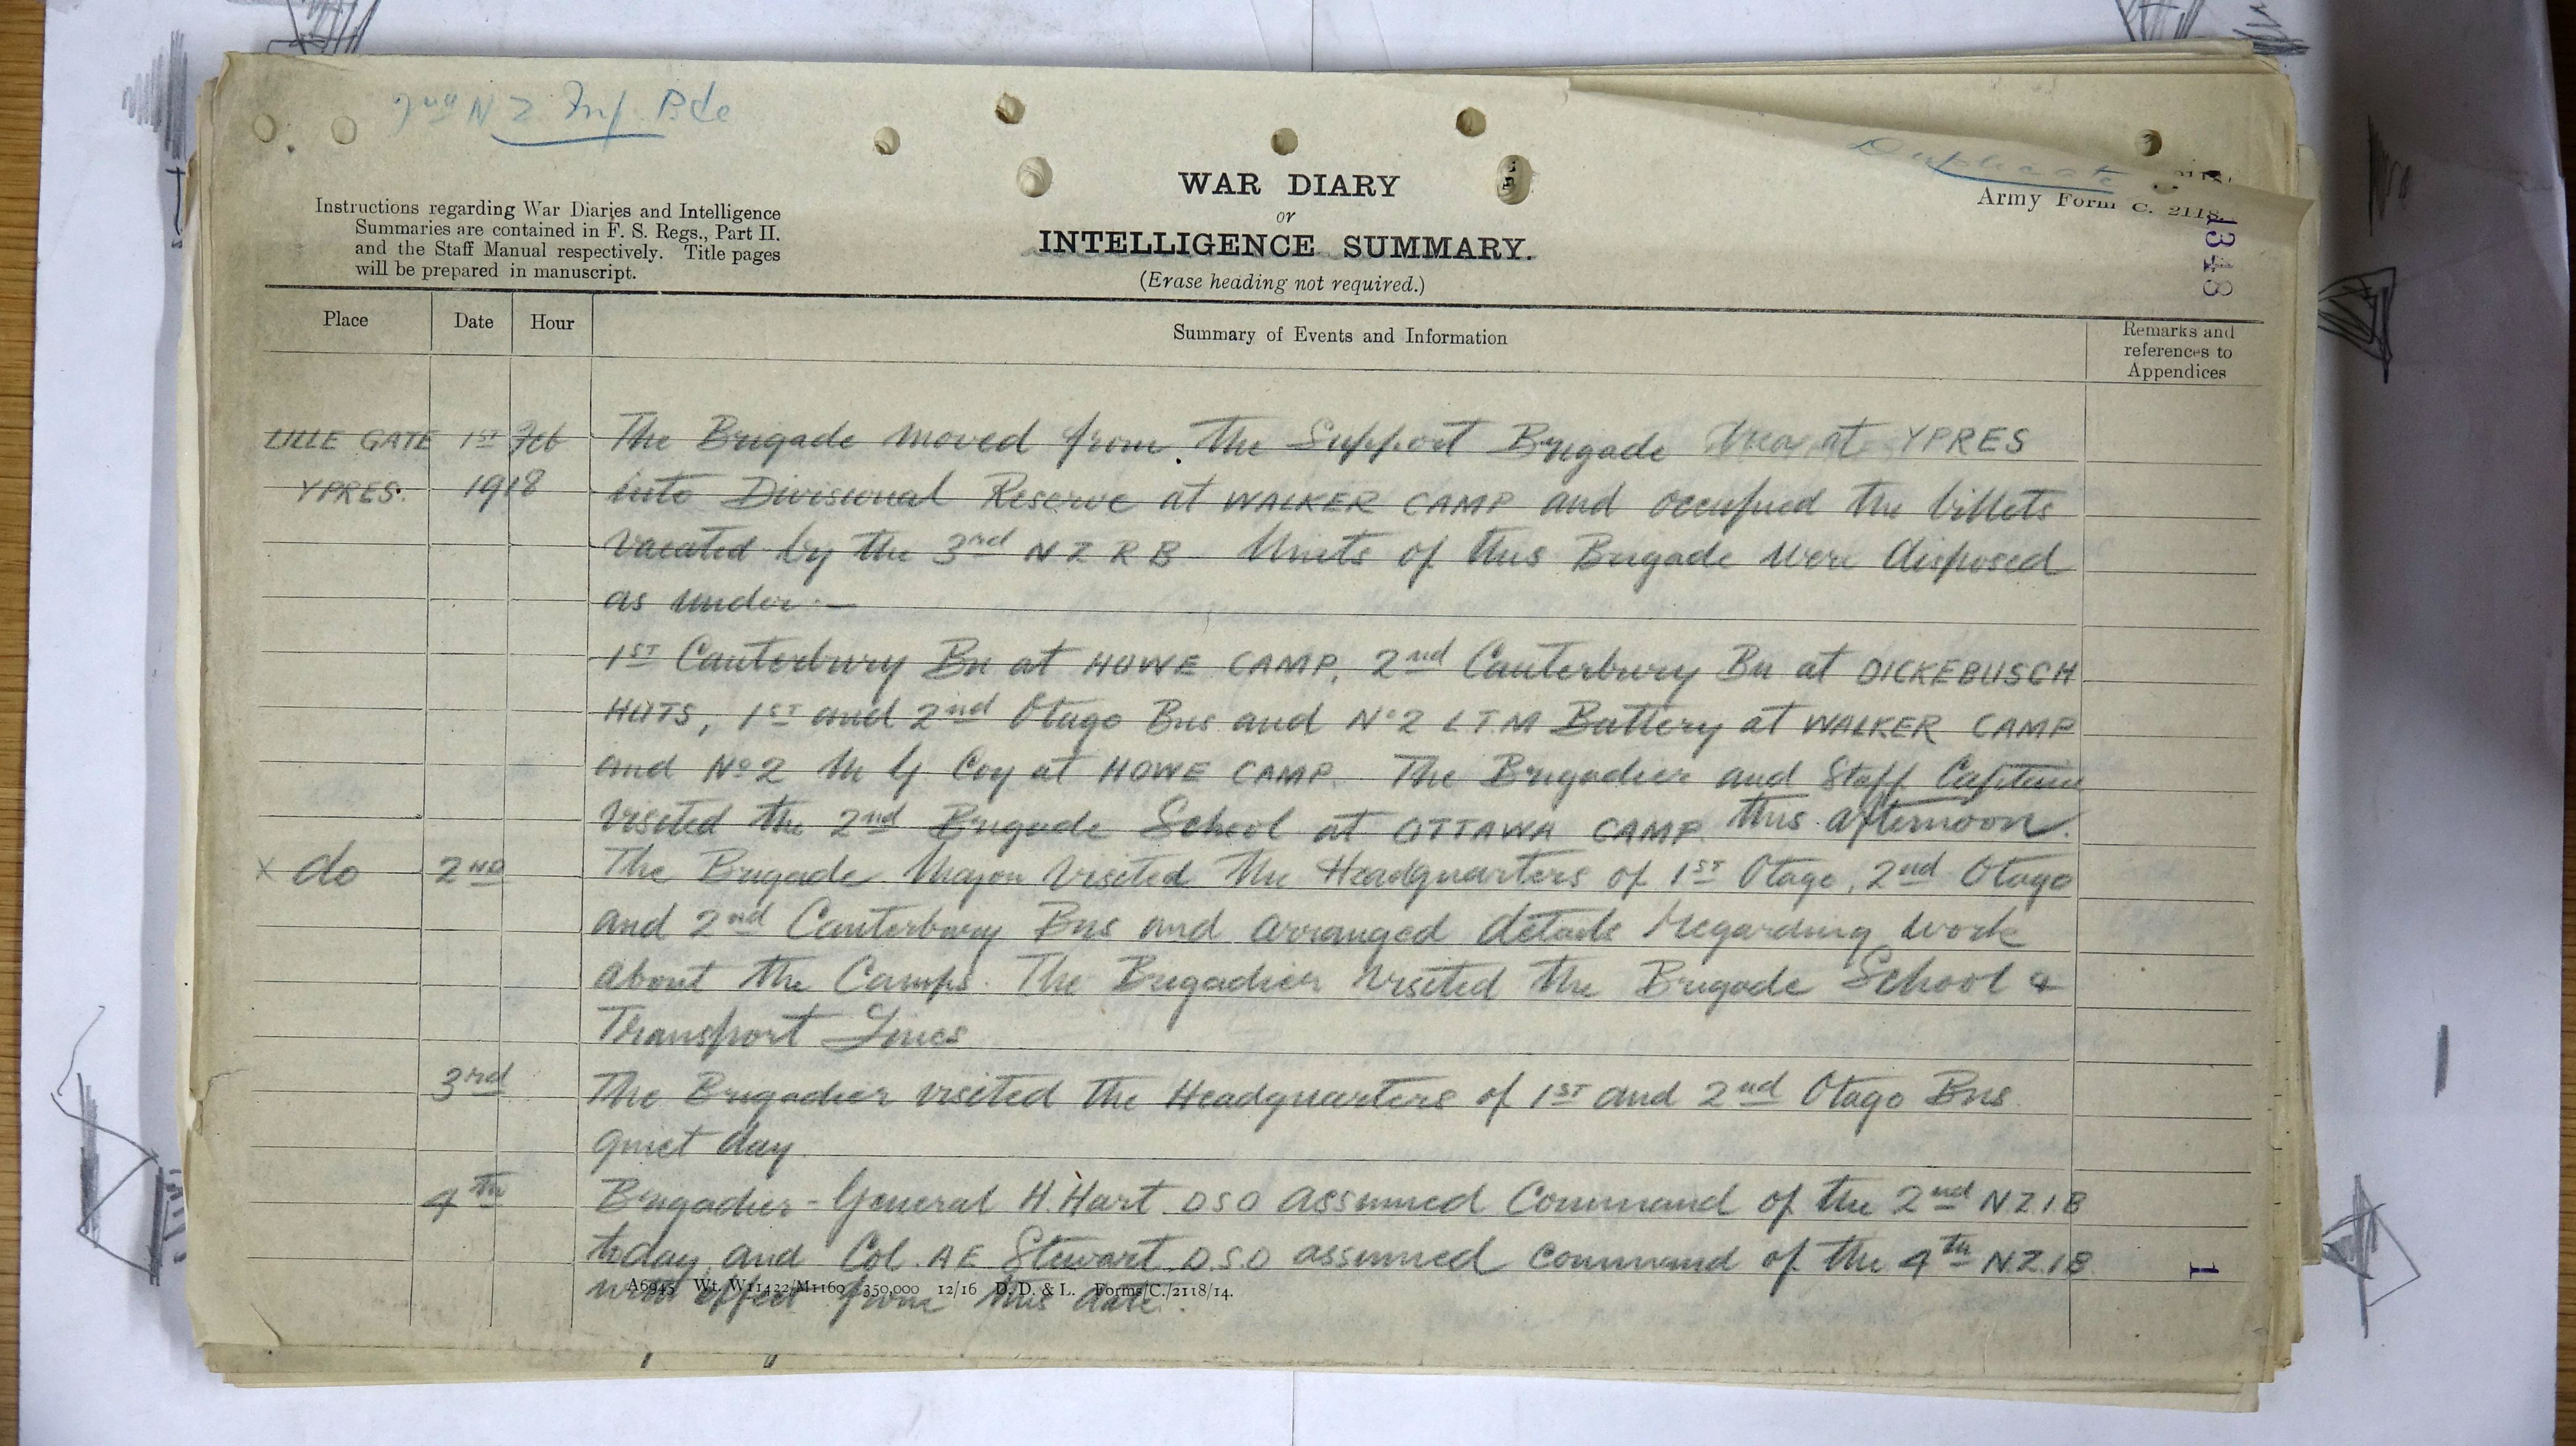 2nd N Z Inf Bde
Duplicate
Instructions regarding War Diaries and Intelligence
Summaries are contained in F. S. Regs., Part II.
and the Staff Manual respectively. Title pages
will be prepared in manuscript.
WAR DIARY
or
INTELLIGENCE SUMMARY.
(Erase heading not required.)
Army Form C. 2118.
1348
Place Date Hour Summary of Events and Information Remarks and
references to
Appendices
LILLE GATE 1ST Feb The Brigade moved from the Support Brigade Area at YPRES
YPRES. 1918 into Divisional Reserve at WALKER CAMP and occupied the billets
vacated by the 3rd N Z R B Units of this Brigade were disposed
as under:—
1ST Canterbury Bn at HOWE CAMP, 2nd Canterbury Bn at DICKEBUSCH
HUTS, 1ST and 2nd Otago Bns and No 2 L T M Battery at WALKER CAMP
and No 2 M G Coy at HOWE CAMP. The Brigadier and Staff Captain
visited the 2nd Brigade School at OTTAWA CAMP this afternoon.
x do 2ND The Brigade Major visited the Headquarters of 1ST Otago, 2nd Otago
and 2nd Canterbury Bns and arranged details regarding work
about the Camps. The Brigadier visited the Brigade School &
Transport Lines
3rd The Brigadier visited the Headquarters of 1ST and 2nd Otago Bns
quiet day
4th Brigadier-General H. Hart DSO assumed Command of the 2nd N.Z.I.B
today and Col. A E Stewart D.S.O assumed command of the 4th N.Z.I.B
with effect from this date.
A6945 Wt. W11422/M1160 350,000 12/16 D. D. & L. Forms/C./2118/14.
1